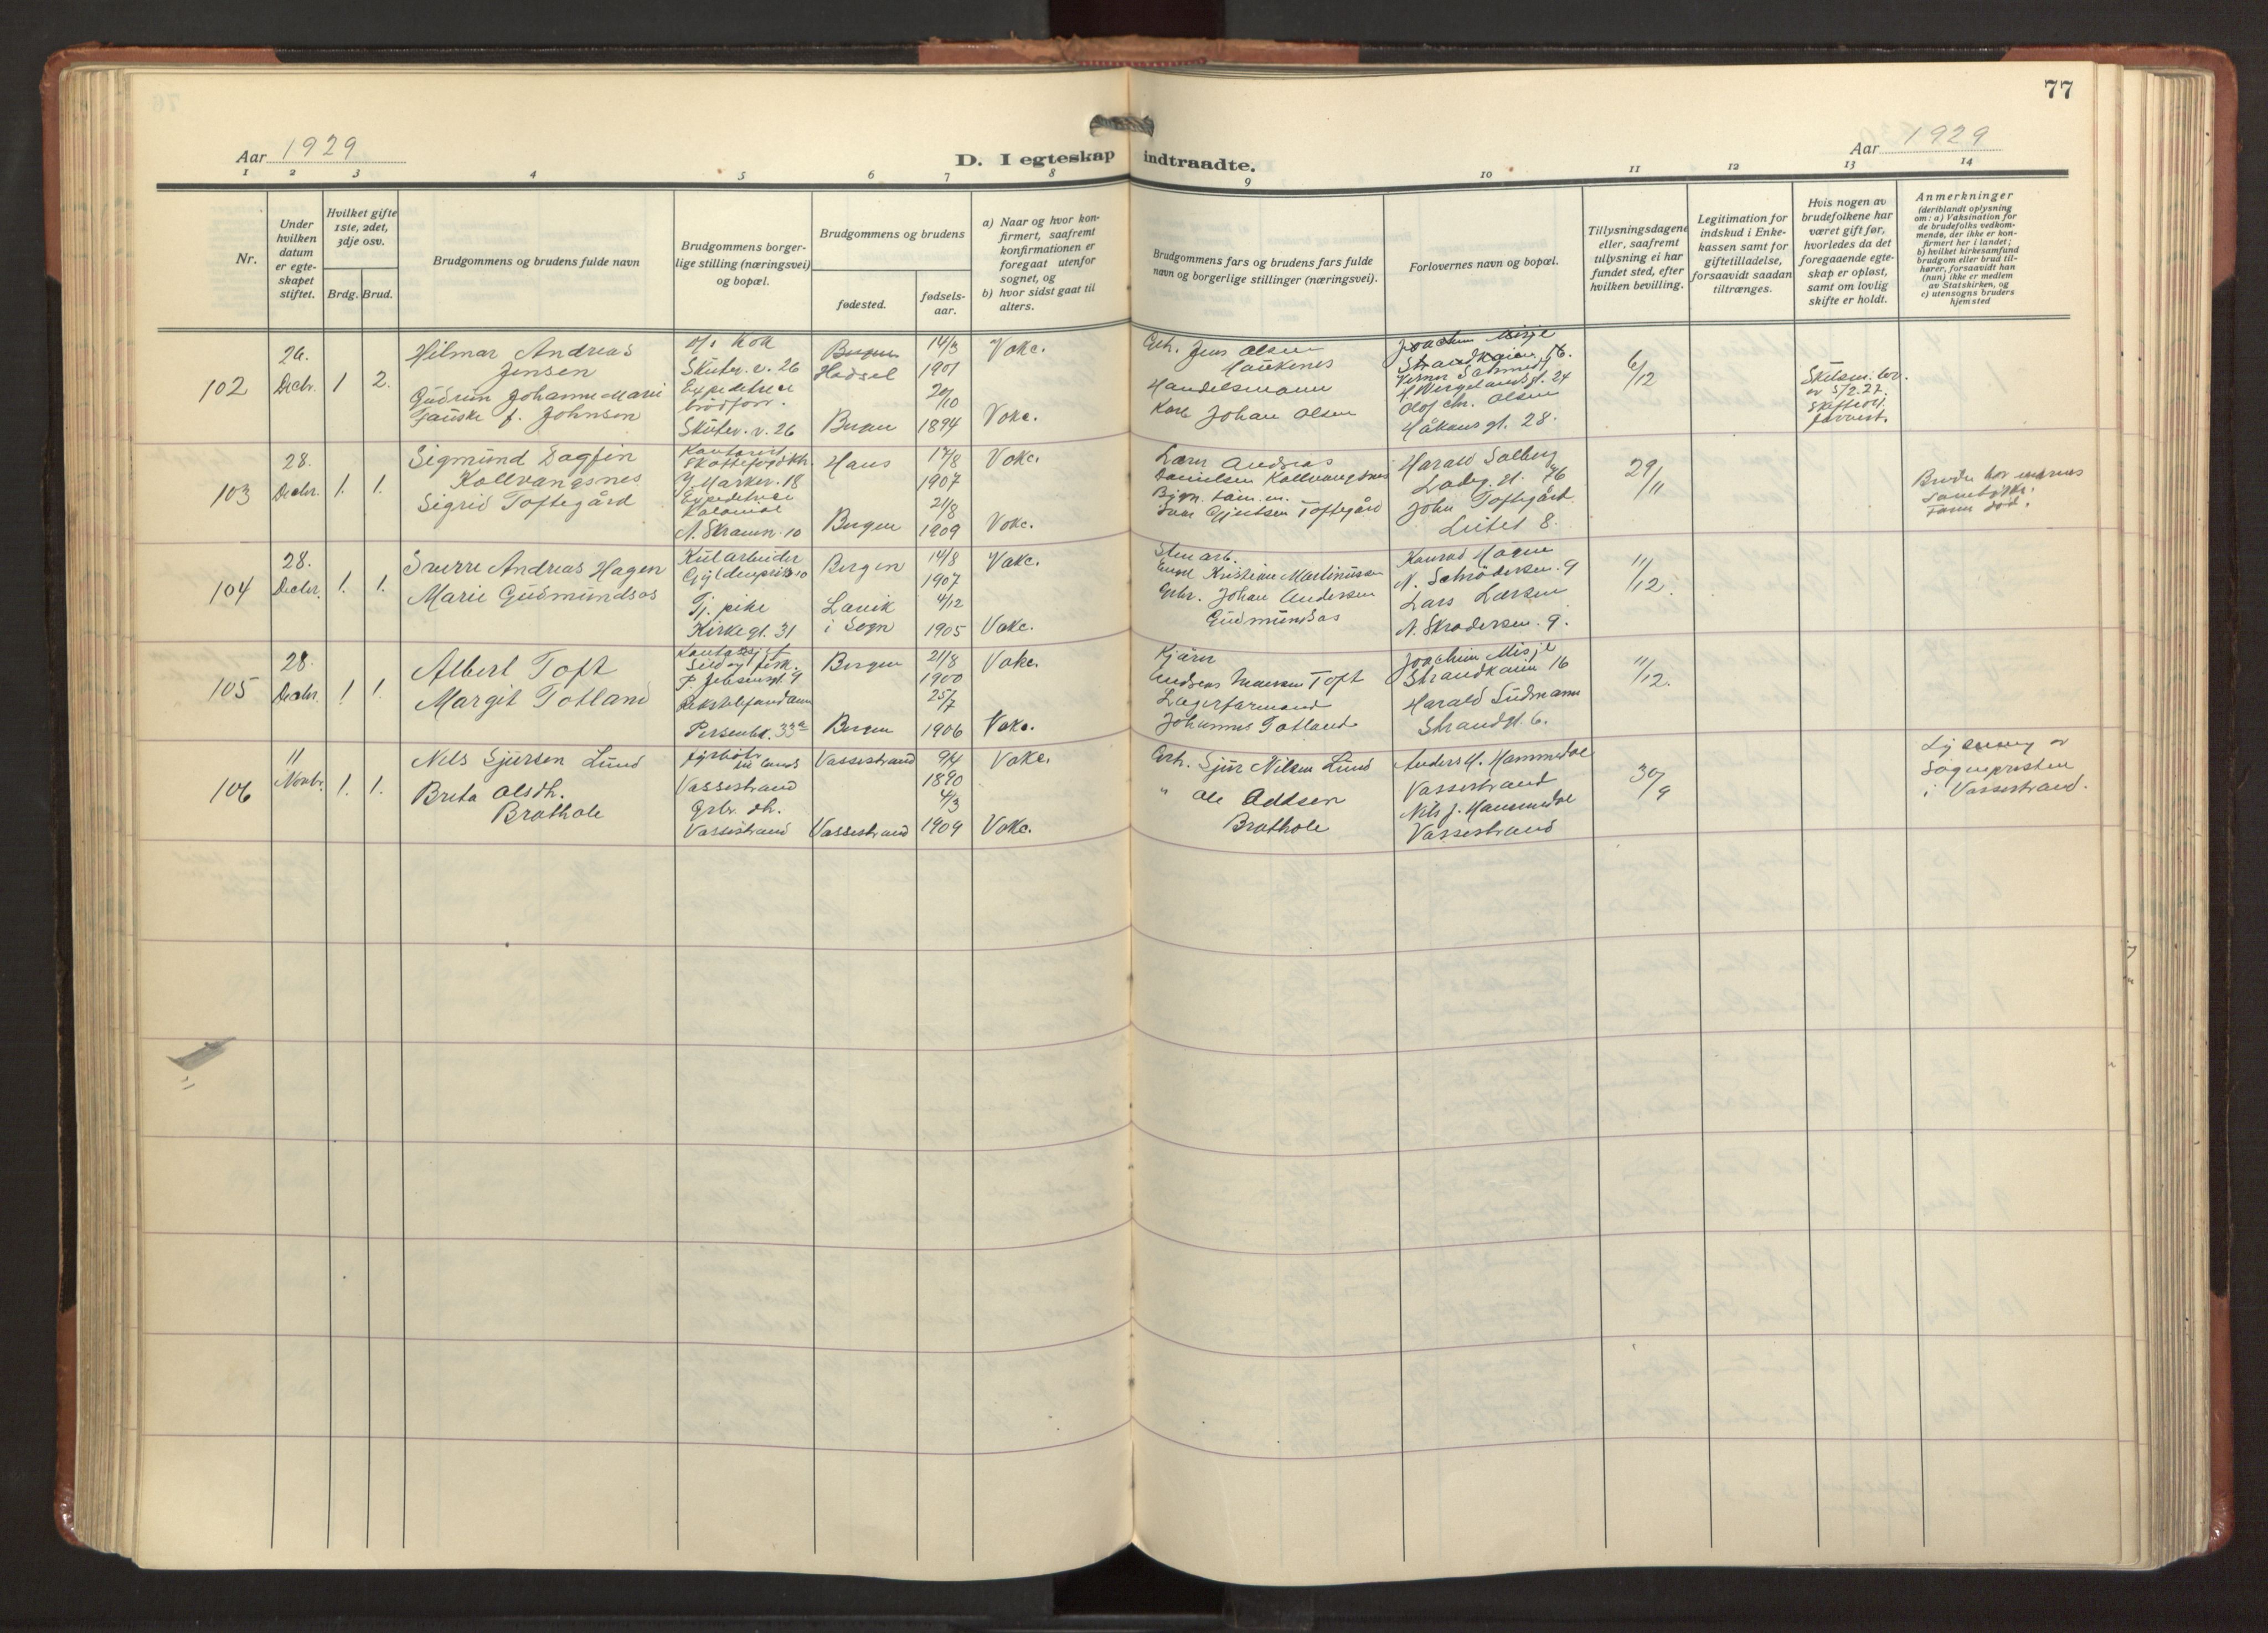 77
Aar 1929
D. I egteskap indtraadte.
Aar 1929
1 2 3 4 5 6 7 8 9 10 11 12 13 14
Nr.
Under
hvilken
datum
er egte-
skapet
stiftet.
Hvilket gifte
1ste, 2det,
3dje osv.
Brdg. Brud.
Brudgommens og brudens fulde navn
Brudgommens borger-
lige stilling (næringsvei)
og bopæl.
Brudgommens og brudens
fødested.
fødsels-
aar.
a) Naar og hvor kon-
firmert, saafremt
konfirmationen er
foregaat utenfor
sognet, og
b) hvor sidst gaat til
alters.
Brudgommens fars og brudens fars fulde
navn og borgerlige stillinger (næringsvei).
Forlovernes navn og bopæl.
Tillysningsdagene
eller, saafremt
tillysning ei har
fundet sted, efter
hvilken bevilling.
Legitimation for
indskud i Enke-
kassen samt for
giftetilladelse,
forsaavidt saadan
tiltrænges.
Hvis nogen av
brudefolkene har
været gift før,
hvorledes da det
foregaaende egte-
skap er opløst,
samt om lovlig
skifte er holdt.
Anmerkninger
(deriblandt oplysning
om: a) Vaksination for
de brudefolks vedkom-
mende, der ikke er kon-
firmert her i landet;
b) hvilket kirkesamfund
brudgom eller brud til-
hører, forsaavidt han
(hun) ikke er medlem
av Statskirken, og
c) utensogns bruders
hjemsted
102
26.
Decbr.
1 2.
Hilmar Andreas
Jensen
Gudrun Johanne Marie
Fauske f. Johnsen
Kok
Skutev. v. 26
Skutev. v. 26
Hadsel
Bergen
14/3
1901
20/10
1894
Vakc.
Vakc.
Jens Olsen
Haukenes
Handelsmann
Karl Johan Olsen
Joachim Misje
Strandkaien 16.
Olof Chr. Olsen
Håkons gt. 28.
6/12
103
28.
Decbr.
1. 1.
Sigmund Dagfin
Kollvangsnes
Sigrid Toftegård
Y. Markev. 18
A. Skramm. 10
Haus
Bergen
17/8
1907
21/8
1909
Vakc.
Vakc.
Lærer Andreas
Danielsen Kollvangsnes
Toftegård
Harald Solberg
Ladeg. gt. 76
John Toftegård
29/11
104
28.
Decbr.
1. 1.
Sverre Andreas Hagen
Marie Gudmundsos
Kularbeider
Tj. pike
Kirkegt. 31
Bergen
Lavik
i Sogn
14/8
1907
4/12
1905
Vakc.
Vakc.
Stenarb.
Kristian Martinussen
Grbr. Johan Andersen
Gudmundsos
Konrad Hagen
Lars Larsen
11/12.
105
28.
Decbr.
1. 1.
Albert Toft
Margit Totland
P. Jebsensgt. 9
Bergen
Bergen
21/8
1900
25/7
1906
Vakc.
Vakc.
Toft
Lagerformand
Johannes Totland
Joachim Misje
Strandkaien 16
Harald Sudmann
Strandgt. 6.
11/12.
106
11
Novbr.
1. 1.
Nils Sjursen Lund
Brita Olsdh.
Brathole
Vassestrand
Grbr. dh.
Vassestrand
Vassestrand
Vassestrand
9/4
1890
4/3
1909
Vakc.
Vakc.
Sjur Nilsen Lund
Ole Oddsen
Brathole
Anders H. Hammedal
Vassestrand
Nils J. Hammedal
Vassestrand
30/9
Lysning av
Sognepresten
i Vassestrand.